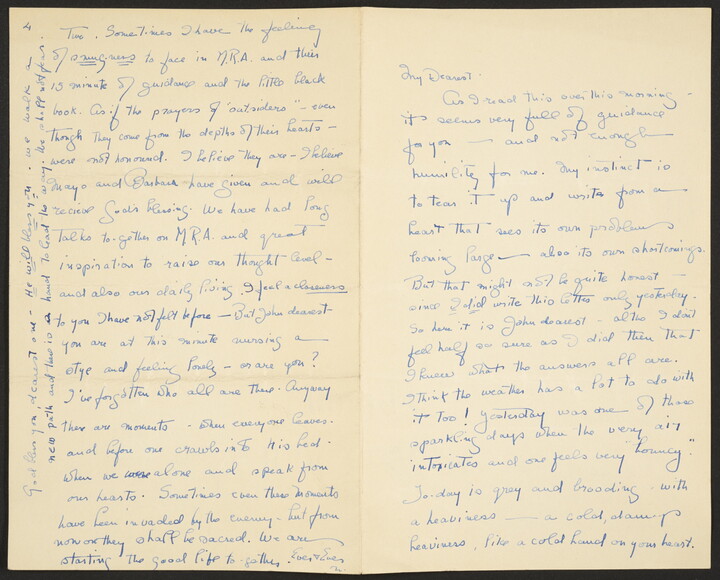 4
Two. Sometimes I have the feeling
of smugness to face in M.R.A. and their
15 minute of guidance and the little black
book. As if the prayers of "outsiders" - even
though they come from the depths of their hearts -
were not honoured. I believe they are - I believe
Mayo and Barbara have given and will
recieve God's blessing. We have had long
talks to-gether on M.R.A. and great
inspiration to raise our thought level -
and also our daily living. I feel a closeness
to you I have not felt before - But John dearest -
you are at this minute nursing a
stye and feeling lonely - or are you?
I've forgotten who all are there. Anyway
there are moments - when everyone leaves.
and before one crawls into His bed -
when we were alone and speak from
our hearts. Sometimes even these moments
have been invaded by the enemy - but from
now on they shall be sacred. We are
starting the good life to-gether. Ever & Ever
God bless you, dearest one - He will bless you - we walk a
new path and there is a hand to lead the way. We shall not fear.
My Dearest.
As I read this over this morning -
it's seems very full of guidance
for you - and not enough
humility for me. My instinct is
to tear it up and write from a
heart that sees its own problems
looming large - also its own shortcomings.
But that might not be quite honest -
since I did write this letter only yesterday.
So here it is John dearest - altho I don't
feel half so sure as I did then that
I knew what the answers all are.
I think the weather has a lot to do with
it too! Yesterday was one of those
sparkling days when the very air
intoxicates and one feels very
To-day is grey and brooding. with
a heaviness - a cold, damp
heaviness, like a cold hand on your heart.